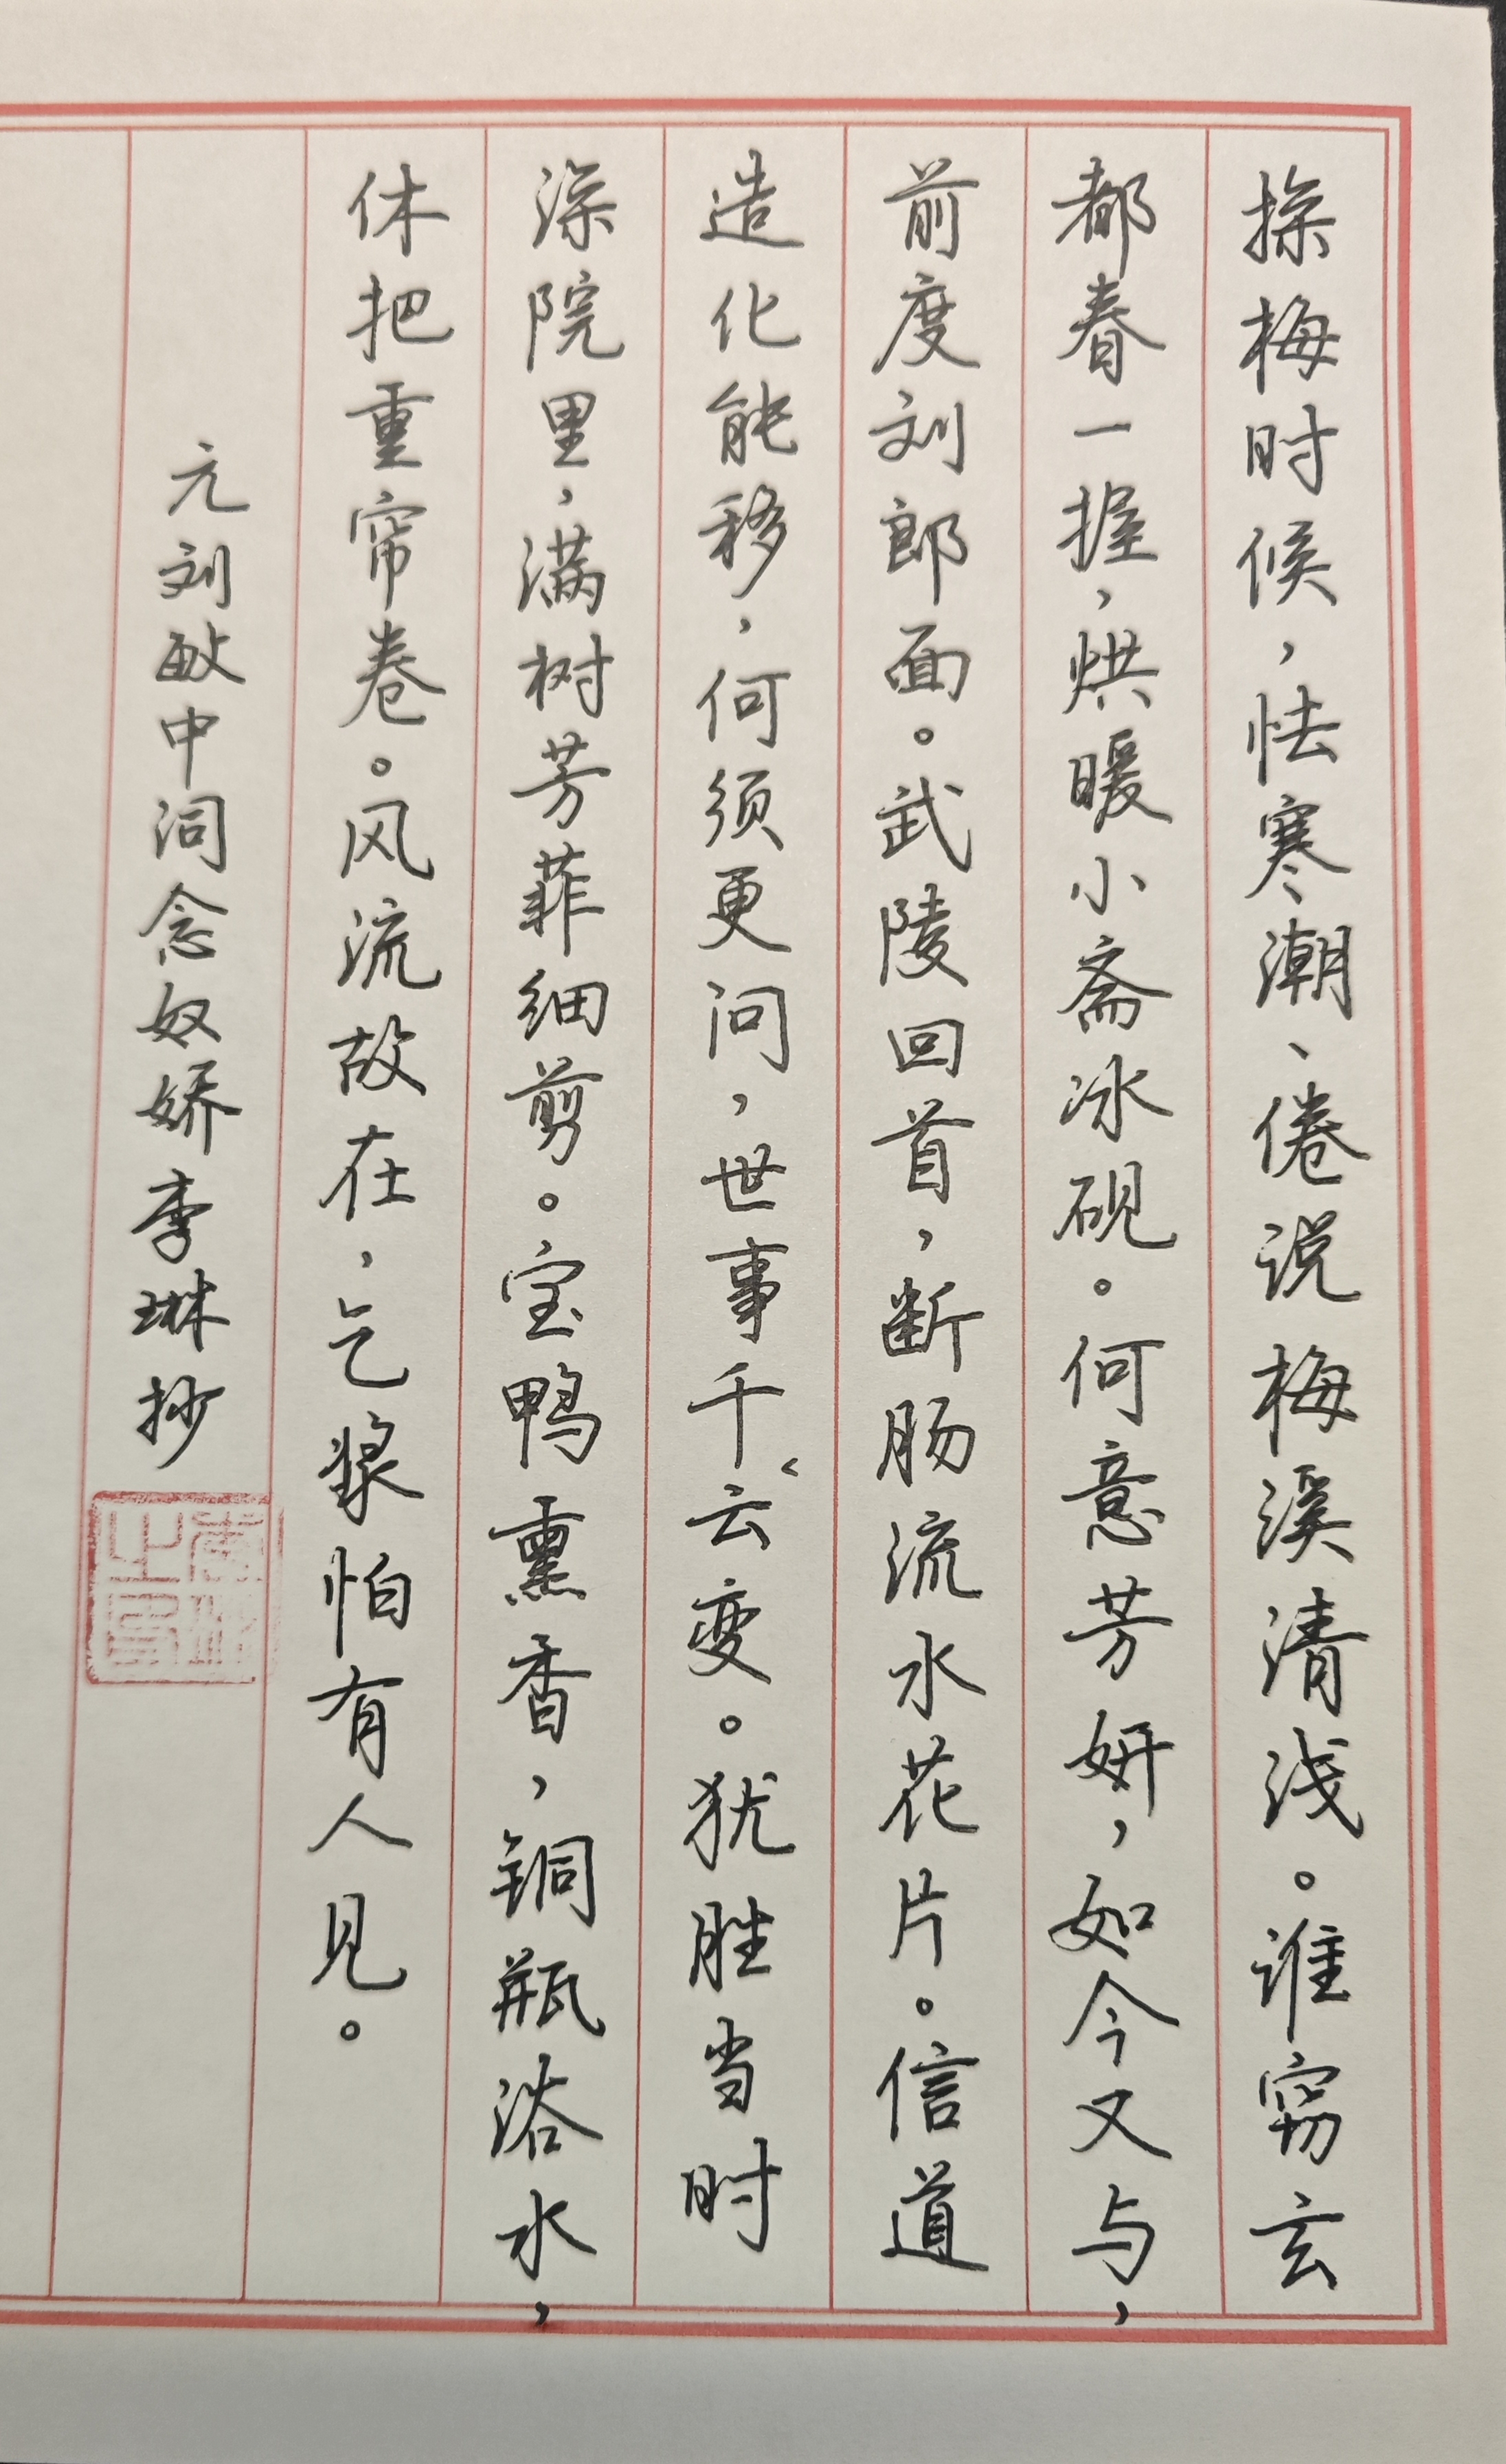 探梅时候，怯寒潮、倦说梅溪清浅。谁窃玄
都春一握，烘暖小斋冰砚。何意芳妍，如今又与，
前度刘郎面。武陵回首，断肠流水花片。信道
造化能移，何须更问，世事千云变。犹胜当时
深院里，满树芳菲细剪。宝鸭熏香，铜瓶浴水，
休把重帘卷。风流故在，乞浆怕有人见。
元刘敏中词念奴娇李琳抄